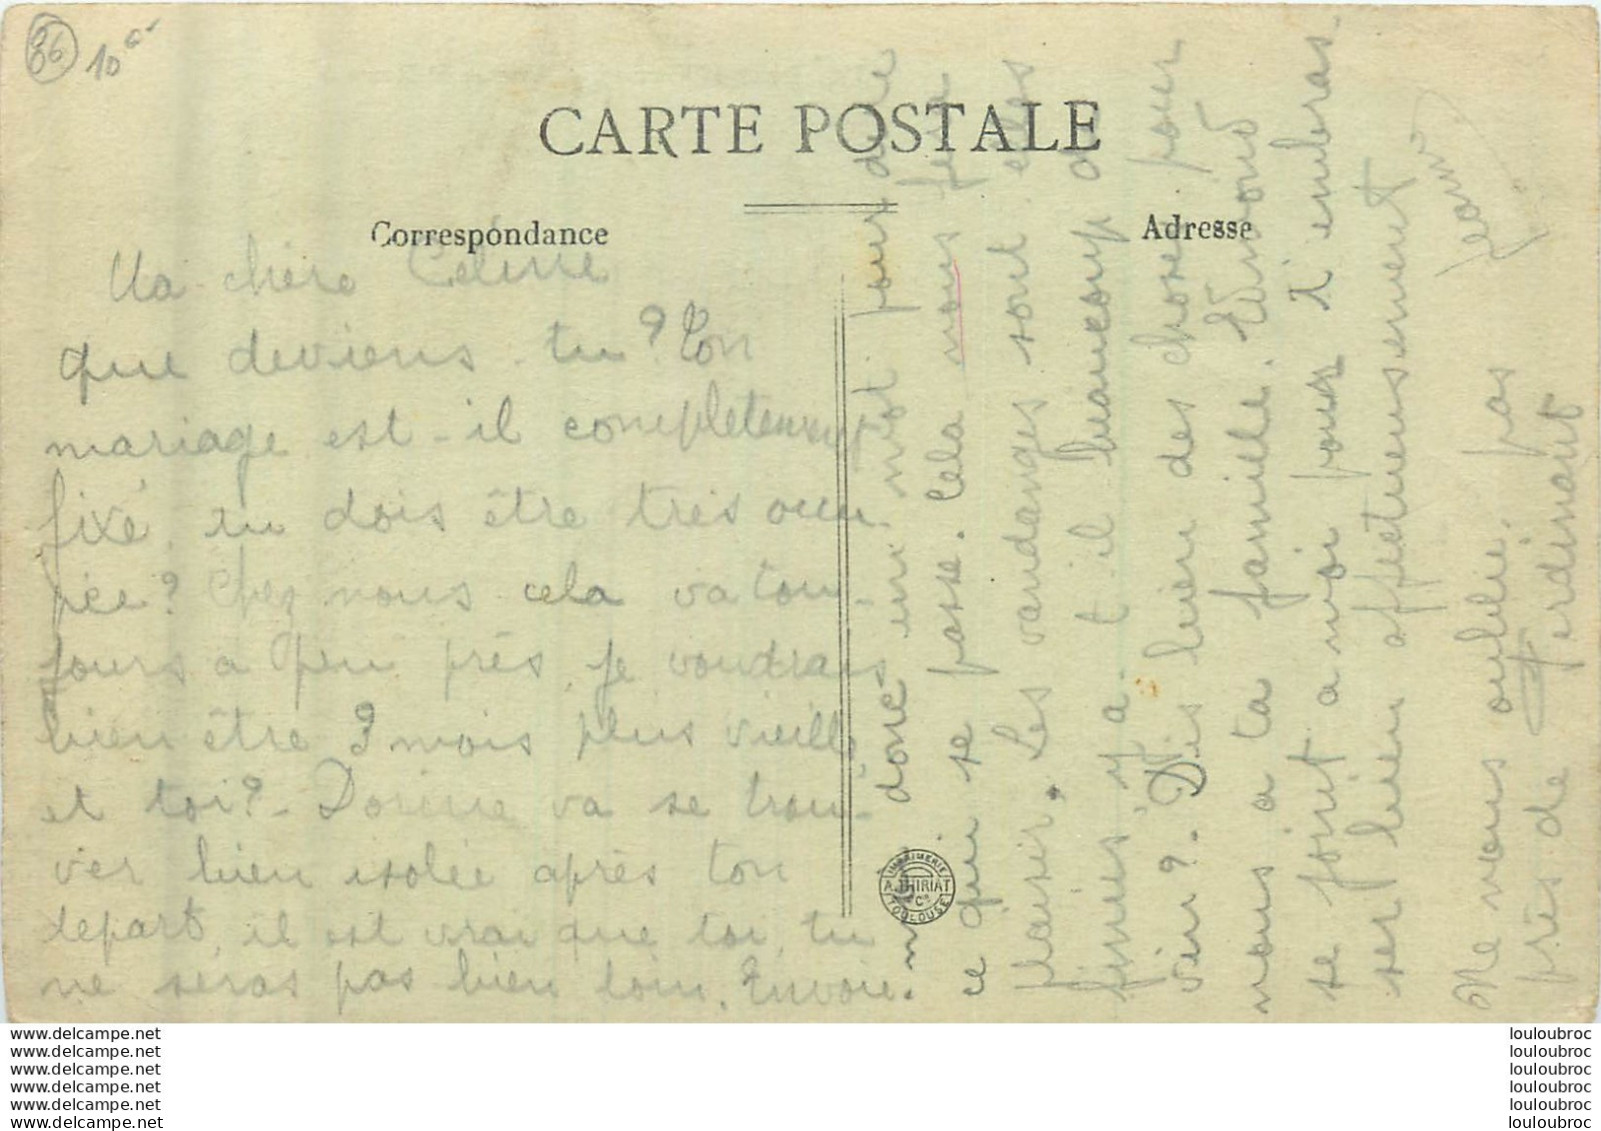 86
10
CARTE POSTALE
Correspondance
Adresse
Ma chère Céline
que deviens tu? Ton
mariage est-il completement
fixé, tu dois être très occu-
pée? Chez nous cela va tou-
jours a peu près, je voudrais
bien être 3 mois plus vieille
et toi? - Dorine va se trou-
ver bien isolée après ton
départ, il est vrai que toi, tu
ne seras pas bien loin. Envoie.
m donc un mot pour dire
ce qui se passe. Cela nous fera
plaisir. Les vandanges sont elles
finies, y a. t il beaucoup de
vin?. Dis bien des choses pour
nous a ta famille. Edmond
se joint a moi pour t'embras-
ser bien affectueusement
Jeanne
Ne nous oublie pas
près de Ferdinant
IMPRIMERIE
A. THIRIAT
& Cie
TOULOUSE
www.delcampe.net
www.delcampe.net
www.delcampe.net
www.delcampe.net
www.delcampe.net
www.delcampe.net
louloubroc
louloubroc
louloubroc
louloubroc
louloubroc
louloubroc